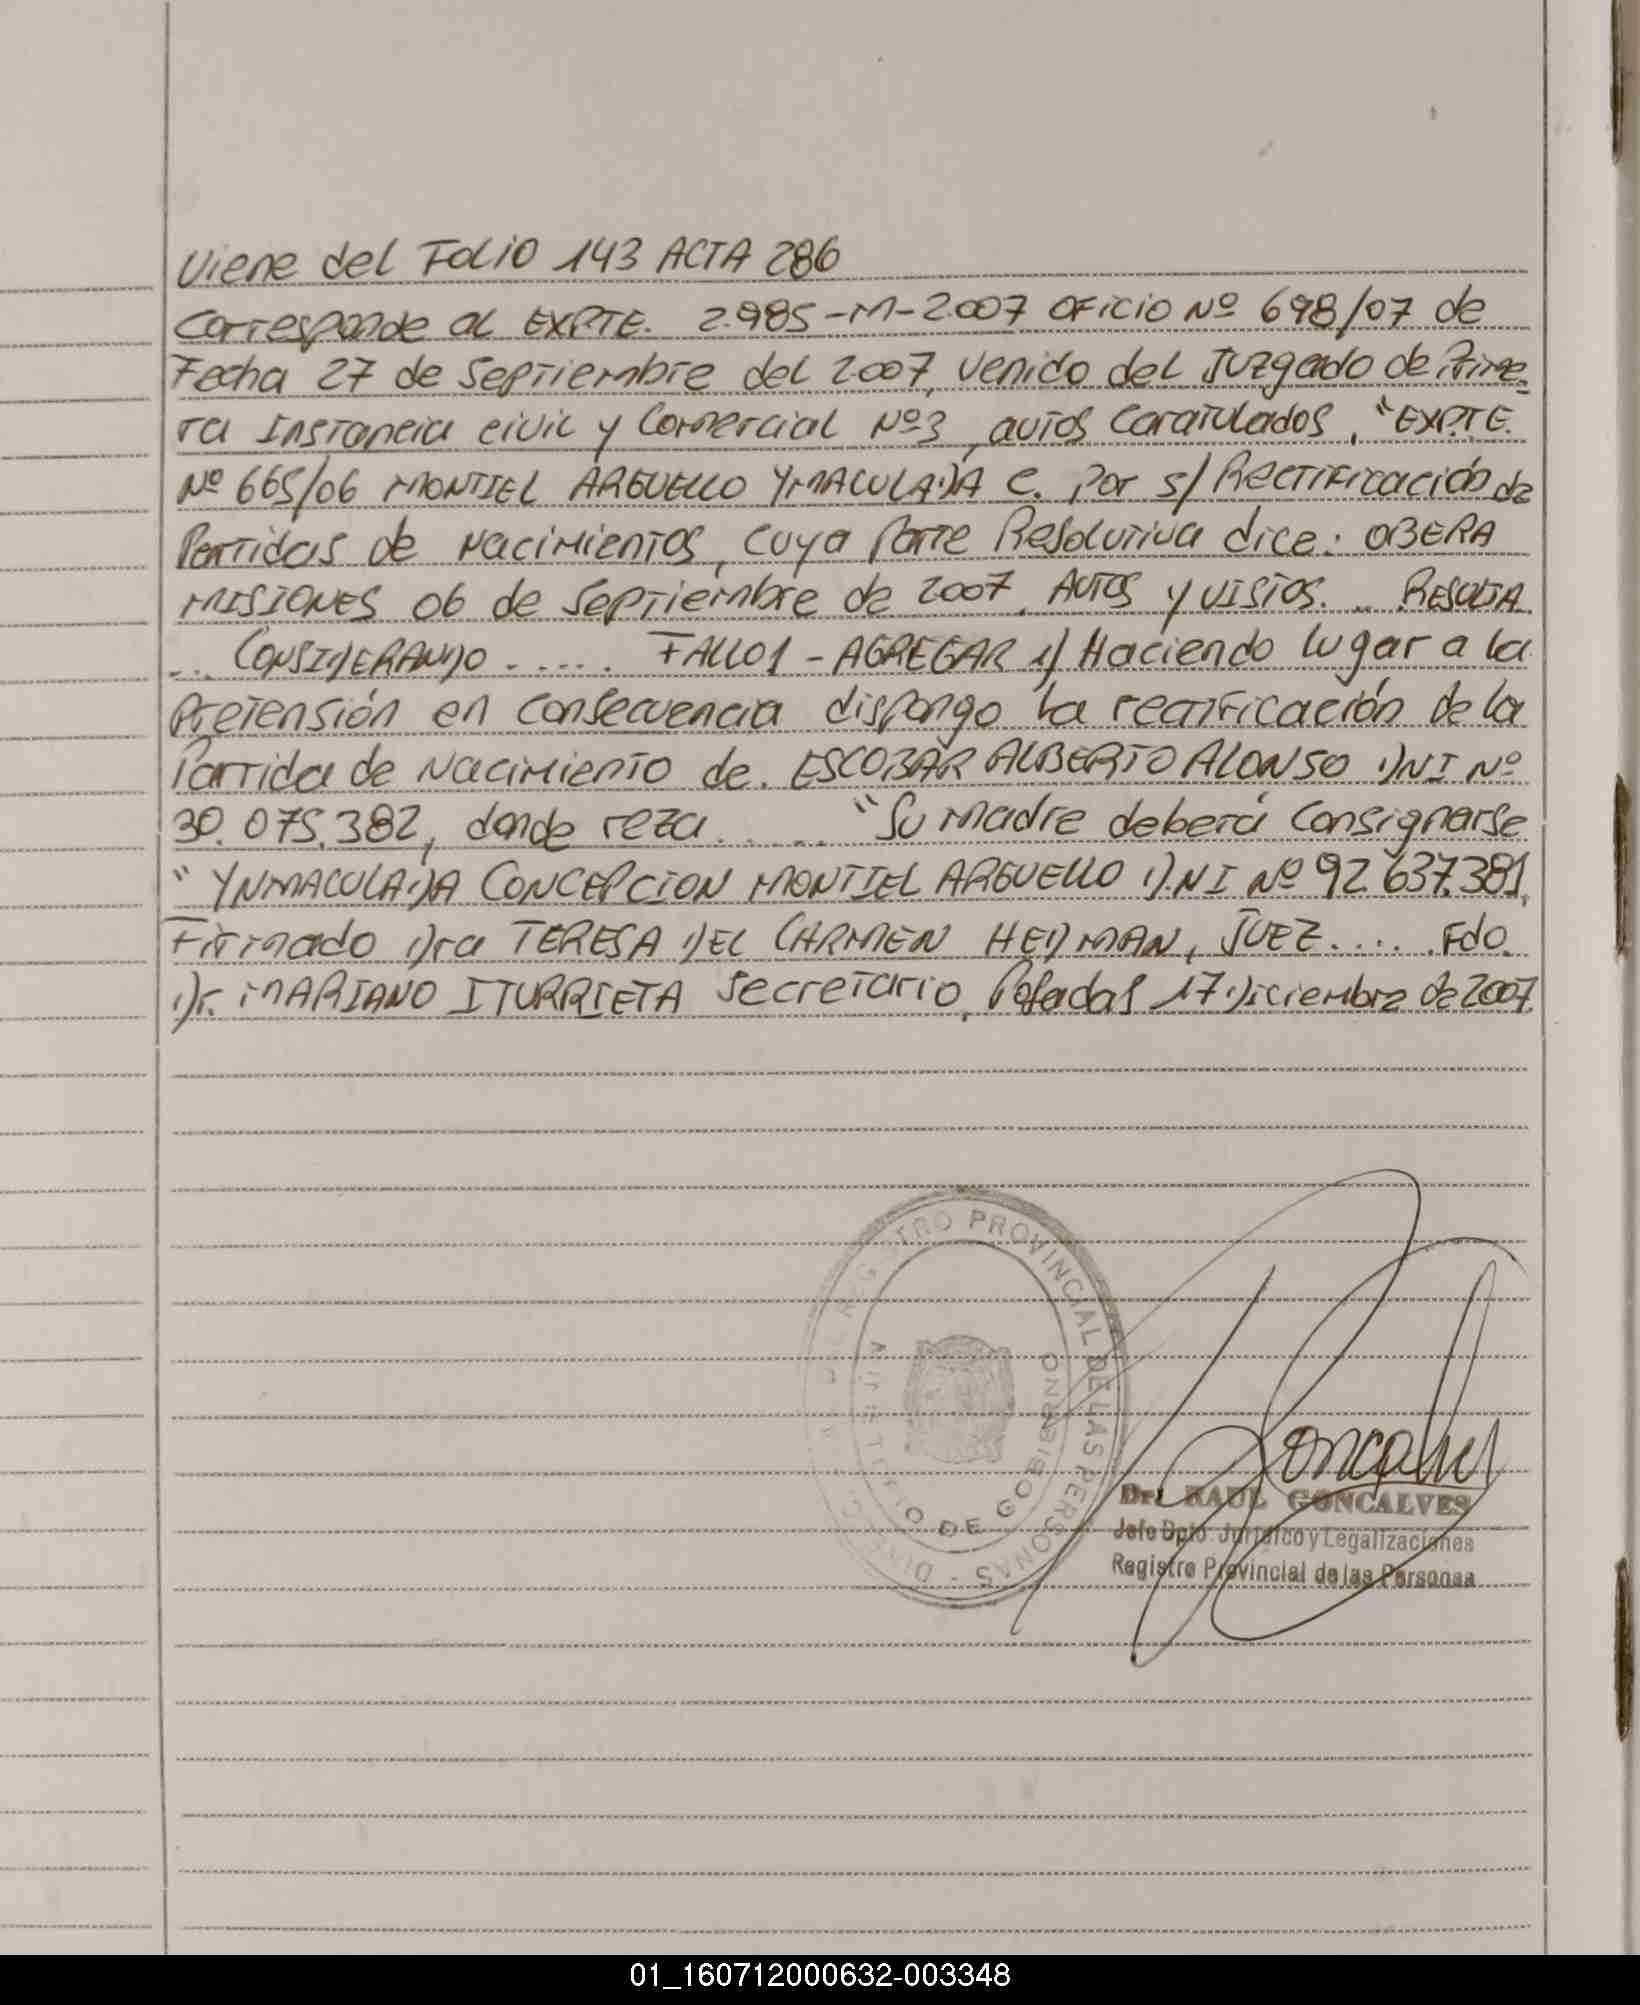 Viene del Folio 143 ACTA 286
Corresponde al EXPTE. 2.985-M-2007 OFicio Nº 698/07 de
Fecha 27 de Septiembre del 2007, venido del Juzgado de Prime-
ra Instancia civil y Comercial Nº3, autos caratulados, "EXPTE.
Nº 665/06 MONTIEL ARGUELLO YMACULADA C. Por s/ Rectificación de
Partidas de Nacimientos, cuya Parte Resolutiva dice: OBERA
MISIONES 06 de Septiembre de 2007. AUTOS y VISTOS... RESULTA
... CONSIDERANDO ...... FALLO1 - AGREGAR 1) Haciendo lugar a la
Pretensión en consecuencia dispongo la rectificación de la
Partida de Nacimiento de. ESCOBAR ALBERTO ALONSO DNI Nº
30.075.382, donde reza ...... "Su madre deberá consignarse
" YNMACULADA CONCEPCION MONTIEL ARGUELLO D.NI Nº 92.637.381,
Firmado Dra TERESA DEL CARMEN HEDMAN, JUEZ..... Fdo.
Dr. MARIANO ITURRIETA Secretario, Posadas 17 Diciembre de 2007.
REGISTRO PROVINCIAL DE LAS PERSONAS -
MINISTERIO DE GOBIERNO
Goncalves
Dr. RAUL GONCALVES
Jefe Dpto. Jurídico y Legalizaciones
Registro Provincial de las Personas
01_160712000632-003348